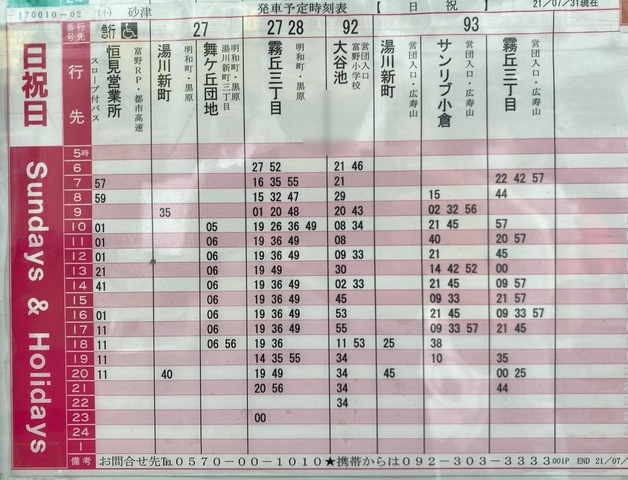 170010-02 (小) 砂津 発車予定時刻表 【 日 祝 】 21/07/31現在
番号 行先 急行 27 27 28 92 93
日祝日
行先
恒見営業所 富野RP・都市高速 スロープ付バス
湯川新町 明和町・黒原
舞ケ丘団地 明和町・黒原 湯川新町三丁目
霧丘三丁目 明和町・黒原
大谷池 営団入口 富野小学校
湯川新町 営団入口・広寿山
サンリブ小倉 営団入口・広寿山
霧丘三丁目 営団入口・広寿山
Sundays & Holidays
5時
6 27 52 21 46
7 57 16 35 55 21 22 42 57
8 59 15 32 47 29 15 44
9 35 01 20 48 20 43 02 32 56
10 01 05 19 26 36 49 08 34 21 45 57
11 01 06 19 36 49 08 40 20 57
12 01 06 19 36 49 09 33 21 45
13 21 06 19 49 30 14 42 52 00
14 41 06 19 36 49 02 33 21 45 09 57
15 06 19 36 49 45 09 33 21 57
16 01 06 19 36 49 53 21 45 09 33 57
17 11 06 19 36 49 55 09 33 57 21 45
18 11 06 56 19 36 11 53 25 38
19 11 14 35 55 34 10 35
20 11 40 19 49 34 45 00 25
21 20 56 34 44
22 34
23 00
24
1
備考 お問合せ先℡0570-00-1010★携帯からは092-303-3333 001P END 21/07/